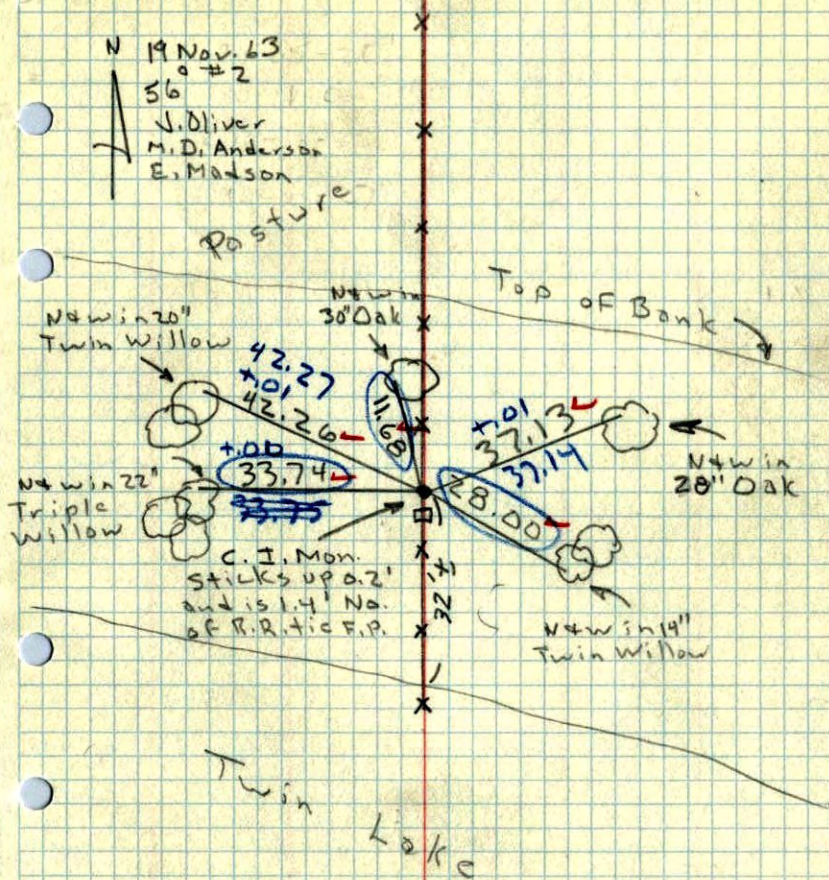 N
19 Nov. 63
56° #2
J. Oliver
M. D. Anderson
E. Madson
Pasture
Top of Bank
N&W in 20"
Twin Willow
N&W in
30" Oak
42.27
+.01
42.26
11.68
+.01
37.13
37.14
N&W in
28" Oak
+.00
33.74
33.75
N&W in 22"
Triple
Willow
28.00
C. I. Mon.
sticks up 0.2'
and is 1.4' No.
of R.R. tie F.P.
32'±
N&W in 14"
Twin Willow
Twin
Lake